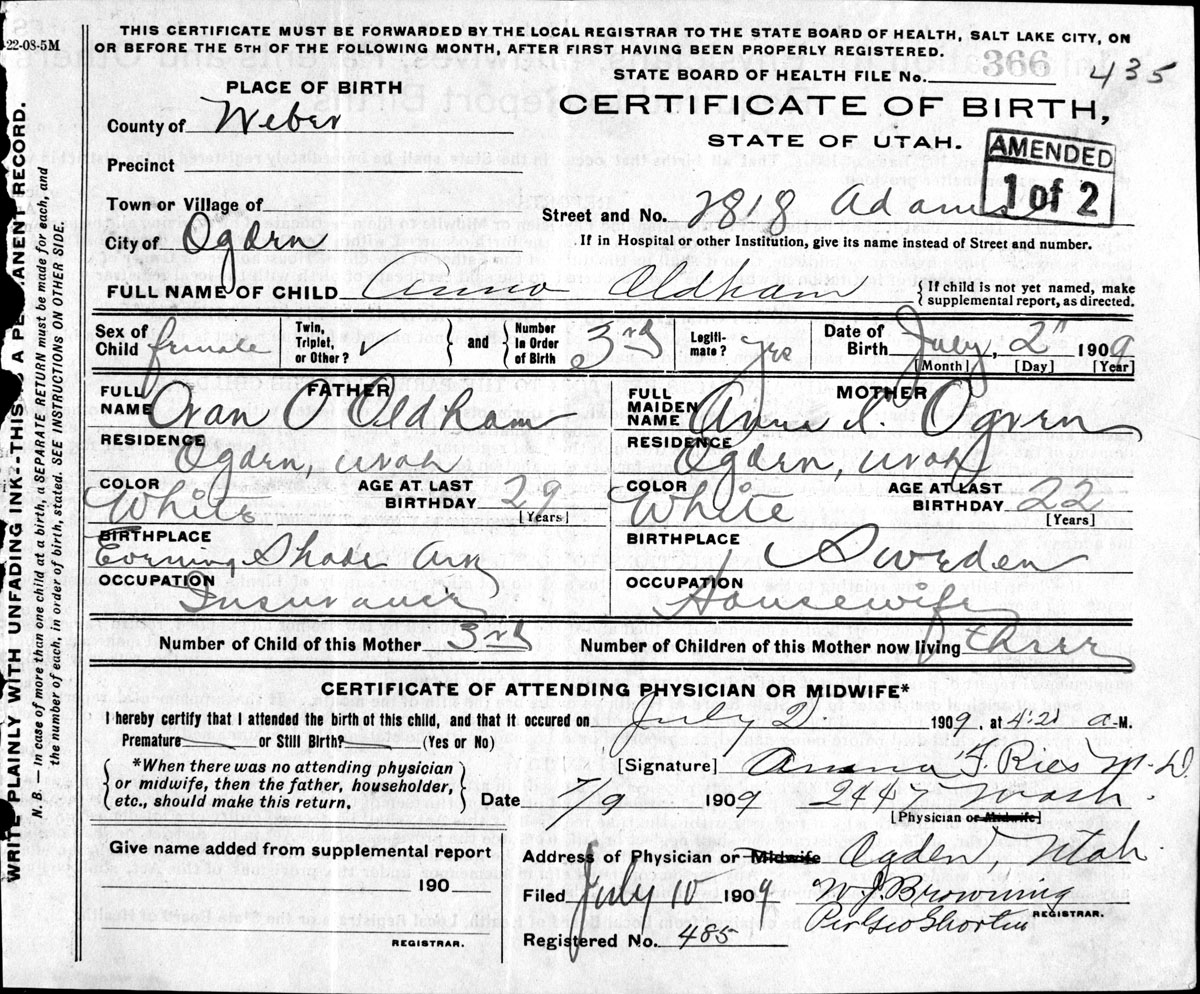 22-08-5M
THIS CERTIFICATE MUST BE FORWARDED BY THE LOCAL REGISTRAR TO THE STATE BOARD OF HEALTH, SALT LAKE CITY, ON
OR BEFORE THE 5TH OF THE FOLLOWING MONTH, AFTER FIRST HAVING BEEN PROPERLY REGISTERED.
STATE BOARD OF HEALTH FILE No. 366 435
PLACE OF BIRTH
CERTIFICATE OF BIRTH,
STATE OF UTAH.
AMENDED
1 of 2
County of Weber
Precinct
Town or Village of
Street and No. 2818 Adams
City of Ogden
If in Hospital or other Institution, give its name instead of Street and number.
FULL NAME OF CHILD Anna Oldham
{If child is not yet named, make
supplemental report, as directed.
Sex of Child female
Twin, Triplet, or Other? √
and
Number in Order of Birth 3rd
Legiti-mate? yes
Date of Birth July, 2" 1909
[Month] [Day] [Year]
FATHER
FULL NAME Oran O Oldham
RESIDENCE
Ogden, Utah
COLOR White
AGE AT LAST BIRTHDAY 29
[Years]
BIRTHPLACE
Evening Shade Ark
OCCUPATION
Insurance
MOTHER
FULL MAIDEN NAME Anna L. Ogren
RESIDENCE
Ogden, Utah
COLOR White
AGE AT LAST BIRTHDAY 22
[Years]
BIRTHPLACE
Sweden
OCCUPATION
Housewife
Number of Child of this Mother 3rd
Number of Children of this Mother now living three
CERTIFICATE OF ATTENDING PHYSICIAN OR MIDWIFE*
I hereby certify that I attended the birth of this child, and that it occured on July 2 1909, at 4:20 a.M.
Premature or Still Birth? (Yes or No)
*When there was no attending physician
or midwife, then the father, householder,
etc., should make this return.
[Signature] Anna F. Ries M.D.
Date 7/9 1909 2447 Wash.
[Physician or Midwife]
Give name added from supplemental report
190
REGISTRAR.
Address of Physician or Midwife Ogden, Utah.
Filed July 10 1909 W J. Browning
REGISTRAR.
Per Geo Shorten
Registered No. 485
WRITE PLAINLY WITH UNFADING INK--THIS IS A PERMANENT RECORD.
N. B.—in case of more than one child at a birth, a SEPARATE RETURN must be made for each, and
the number of each, in order of birth, stated. SEE INSTRUCTIONS ON OTHER SIDE.